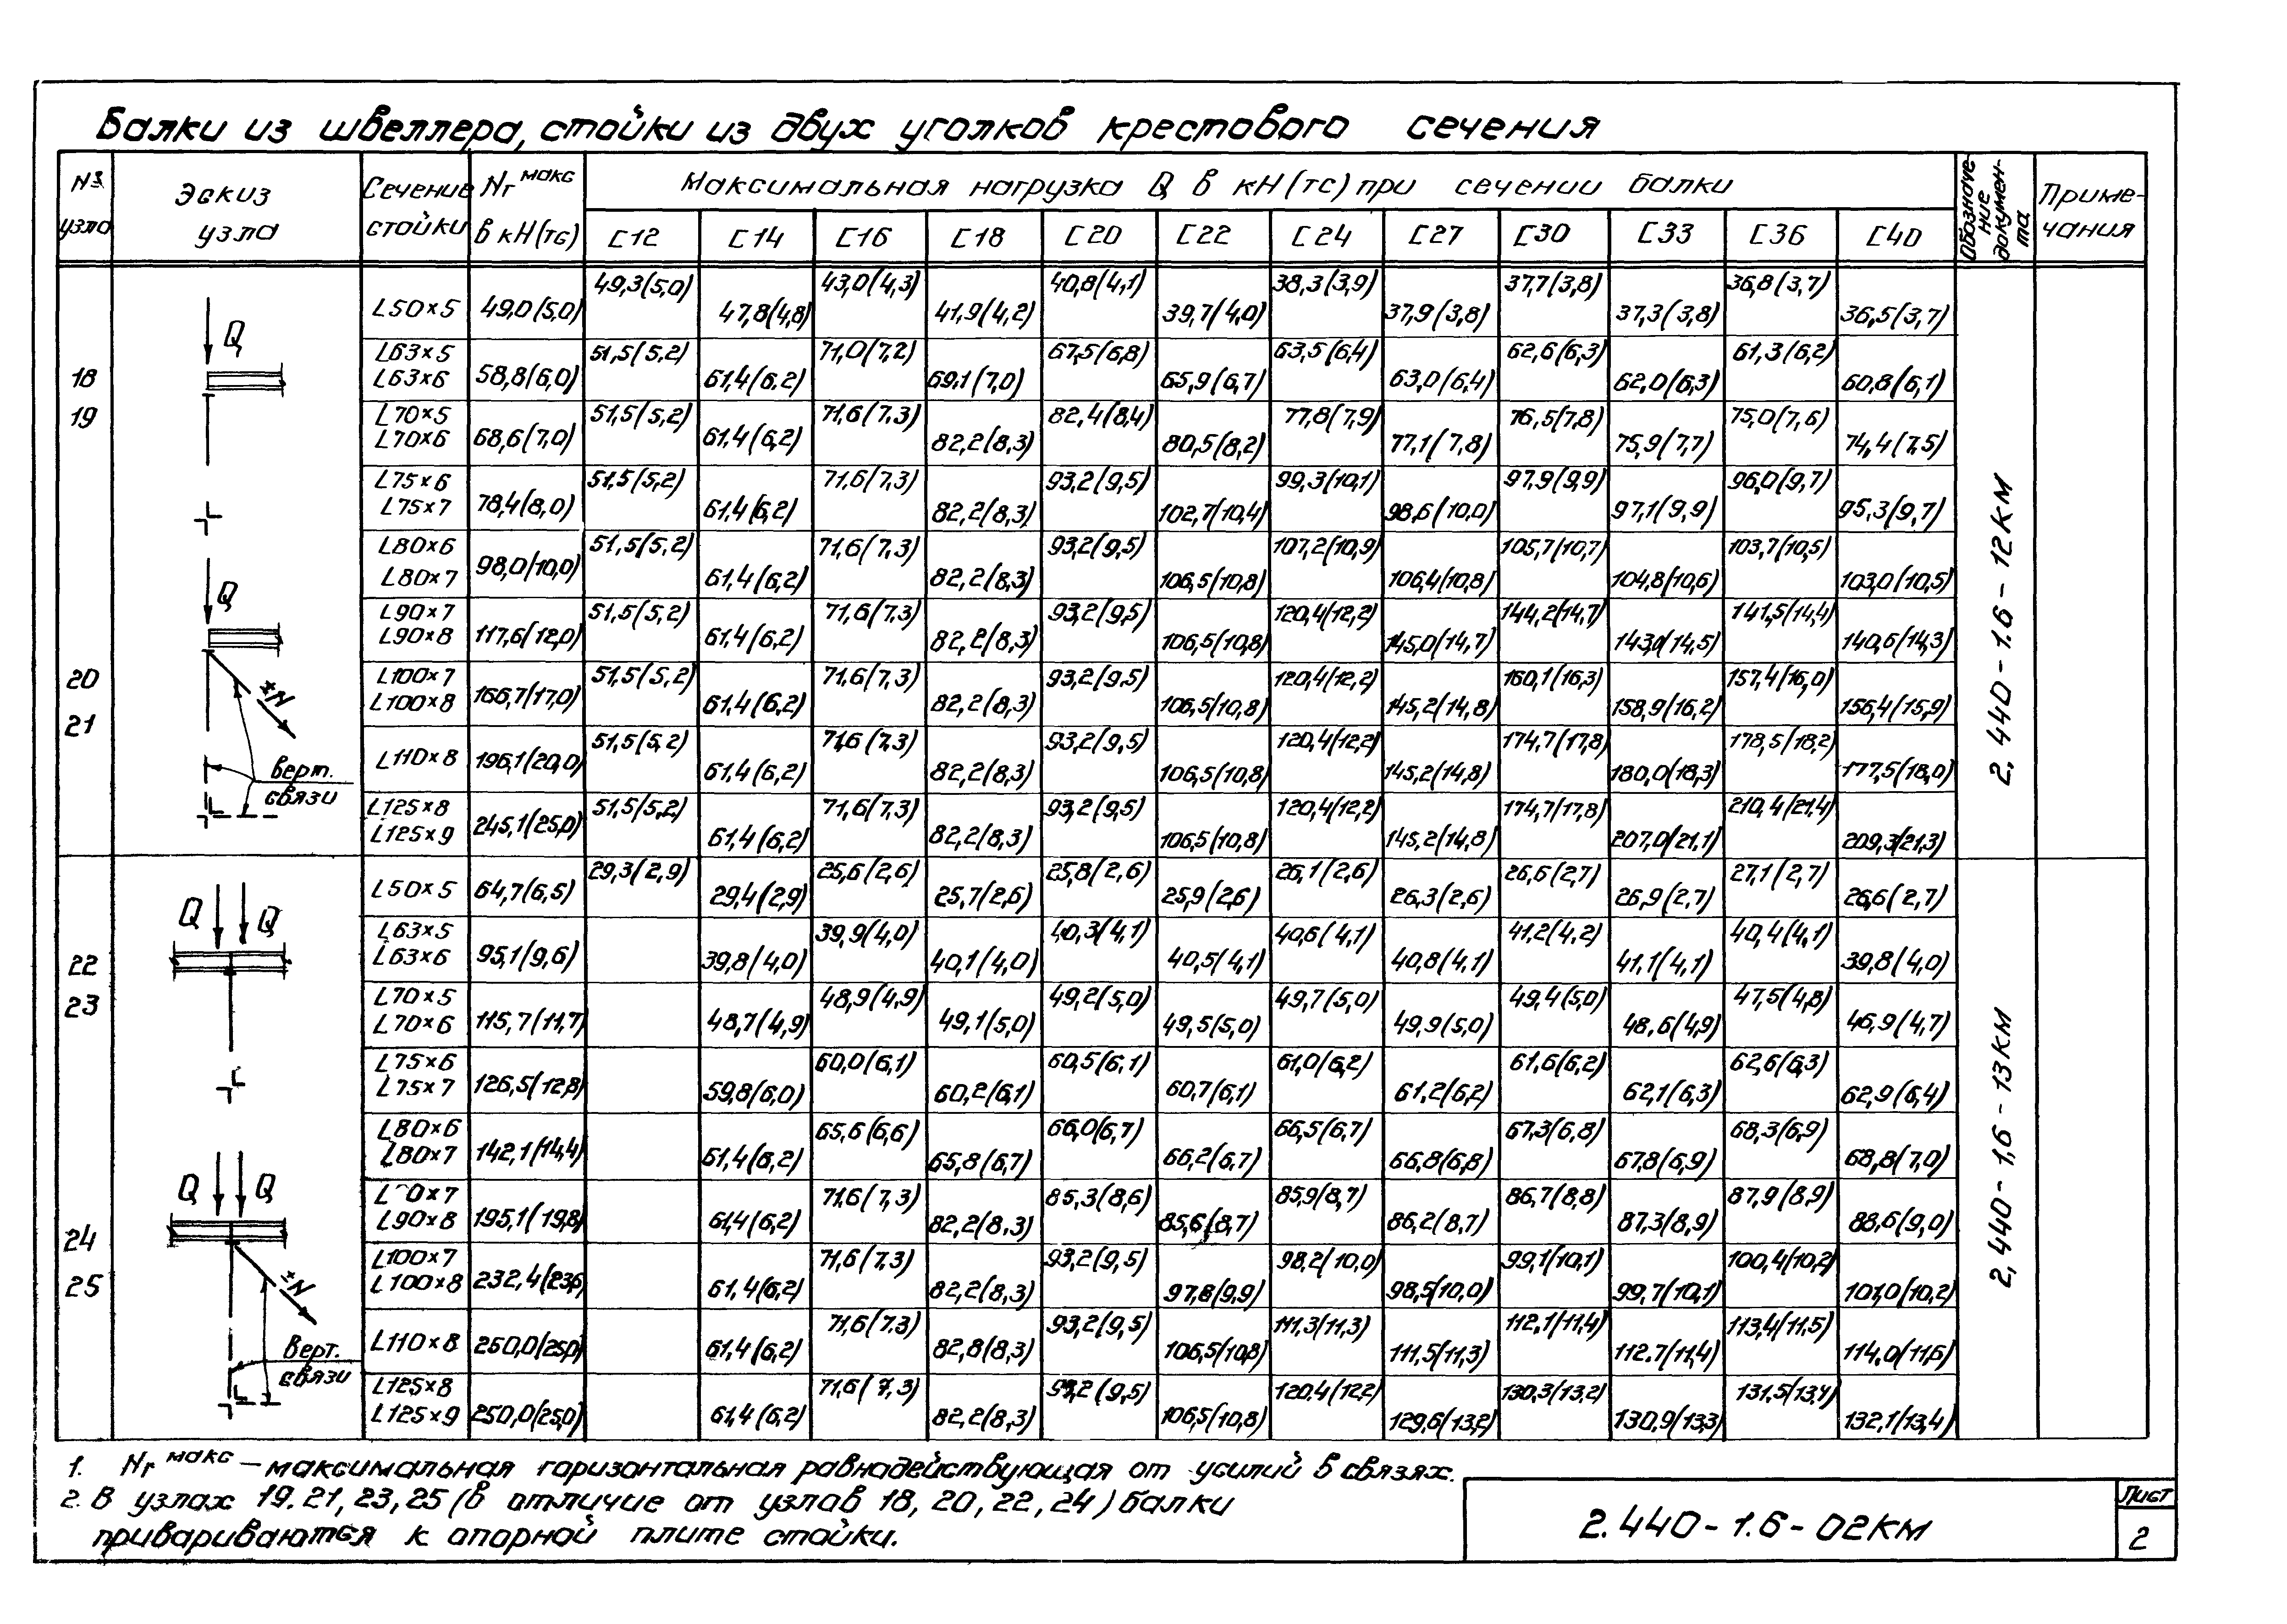 Балки из швеллера, стойки из двух уголков крестового сечения
№ узла Эскиз узла Сечение стойки Nг макс в кН(тс) Максимальная нагрузка Q в кН(тс) при сечении балки Обозначение документа Примечания
[12 [14 [16 [18 [20 [22 [24 [27 [30 [33 [36 [40
18
19
20
21
Q
Q
±N
верт.
связи
L50×5 49,0(5,0) 49,3(5,0) 47,8(4,8) 43,0(4,3) 41,9(4,2) 40,8(4,1) 39,7(4,0) 38,3(3,9) 37,9(3,8) 37,7(3,8) 37,3(3,8) 36,8(3,7) 36,5(3,7)
L63×5 L63×6 58,8(6,0) 51,5(5,2) 61,4(6,2) 71,0(7,2) 69,1(7,0) 67,5(6,8) 65,9(6,7) 63,5(6,4) 63,0(6,4) 62,6(6,3) 62,0(6,3) 61,3(6,2) 60,8(6,1)
L70×5 L70×6 68,6(7,0) 51,5(5,2) 61,4(6,2) 71,6(7,3) 82,2(8,3) 82,4(8,4) 80,5(8,2) 77,8(7,9) 77,1(7,8) 76,5(7,8) 75,9(7,7) 75,0(7,6) 74,4(7,5)
L75×6 L75×7 78,4(8,0) 51,5(5,2) 61,4(6,2) 71,6(7,3) 82,2(8,3) 93,2(9,5) 102,7(10,4) 99,3(10,1) 98,6(10,0) 97,9(9,9) 97,1(9,9) 96,0(9,7) 95,3(9,7)
L80×6 L80×7 98,0(10,0) 51,5(5,2) 61,4(6,2) 71,6(7,3) 82,2(8,3) 93,2(9,5) 106,5(10,8) 107,2(10,9) 106,4(10,8) 105,7(10,7) 104,8(10,6) 103,7(10,5) 103,0(10,5)
L90×7 L90×8 117,6(12,0) 51,5(5,2) 61,4(6,2) 71,6(7,3) 82,2(8,3) 93,2(9,5) 106,5(10,8) 120,4(12,2) 145,0(14,7) 144,2(14,7) 143,0(14,5) 141,5(14,4) 140,6(14,3)
L100×7 L100×8 166,7(17,0) 51,5(5,2) 61,4(6,2) 71,6(7,3) 82,2(8,3) 93,2(9,5) 106,5(10,8) 120,4(12,2) 145,2(14,8) 160,1(16,3) 158,9(16,2) 157,4(16,0) 156,4(15,9)
L110×8 196,1(20,0) 51,5(5,2) 61,4(6,2) 71,6(7,3) 82,2(8,3) 93,2(9,5) 106,5(10,8) 120,4(12,2) 145,2(14,8) 174,7(17,8) 180,0(18,3) 178,5(18,2) 177,5(18,0)
L125×8 L125×9 245,1(25,0) 51,5(5,2) 61,4(6,2) 71,6(7,3) 82,2(8,3) 93,2(9,5) 106,5(10,8) 120,4(12,2) 145,2(14,8) 174,7(17,8) 207,0(21,1) 210,4(21,4) 209,3(21,3)
2.440-1.6-12КМ
22
23
24
25
Q Q
Q Q
±N
Верт.
связи
L50×5 64,7(6,5) 29,3(2,9) 29,4(2,9) 25,6(2,6) 25,7(2,6) 25,8(2,6) 25,9(2,6) 26,1(2,6) 26,3(2,6) 26,6(2,7) 26,9(2,7) 27,1(2,7) 26,6(2,7)
L63×5 L63×6 95,1(9,6) 39,8(4,0) 39,9(4,0) 40,1(4,0) 40,3(4,1) 40,5(4,1) 40,6(4,1) 40,8(4,1) 41,2(4,2) 41,1(4,1) 40,4(4,1) 39,8(4,0)
L70×5 L70×6 115,7(11,7) 48,7(4,9) 48,9(4,9) 49,1(5,0) 49,2(5,0) 49,5(5,0) 49,7(5,0) 49,9(5,0) 49,4(5,0) 48,6(4,9) 47,5(4,8) 46,9(4,7)
L75×6 L75×7 126,5(12,8) 59,8(6,0) 60,0(6,1) 60,2(6,1) 60,5(6,1) 60,7(6,1) 61,0(6,2) 61,2(6,2) 61,6(6,2) 62,1(6,3) 62,6(6,3) 62,9(6,4)
L80×6 L80×7 142,1(14,4) 61,4(6,2) 65,6(6,6) 65,8(6,7) 66,0(6,7) 66,2(6,7) 66,5(6,7) 66,8(6,8) 67,3(6,8) 67,8(6,9) 68,3(6,9) 68,8(7,0)
L90×8 195,1(19,8) 61,4(6,2) 71,6(7,3) 82,2(8,3) 85,3(8,6) 85,6(8,7) 85,9(8,7) 86,2(8,7) 86,7(8,8) 87,3(8,9) 87,9(8,9) 88,6(9,0)
L100×7 L100×8 232,4(23,6 61,4(6,2) 71,6(7,3) 82,2(8,3) 93,2(9,5) 97,8(9,9) 98,2(10,0) 98,5(10,0) 99,1(10,1) 99,7(10,1) 100,4(10,2) 101,0(10,2)
L110×8 250,0(25,0) 61,4(6,2) 71,6(7.3) 82,8(8,3) 93,2(9,5) 106,5(10,8) 111,3(11,3) 111,5(11,3) 112,1(11,4) 112.7(11,4) 113,4(11,5) 114,0(11,6)
L125×8 L125×9 250,0(25,0) 61,4(6,2) 71,6(7,3) 82,2(8,3) 93,2(9,5) 106,5(10,8) 120,4(12,2) 129,6(13,2) 130,3(13,2) 130,9(13,3) 131,5(13,4) 132,1(13,4)
2,440-1,6-13КМ
1. Nг макс – максимальная горизонтальная равнодействующая от усилий в связях.
2. В узлах 19, 21, 23, 25 (в отличие от узлов 18, 20, 22, 24) балки
привариваются к опорной плите стойки.
2.440-1.6-02КМ
Лист
2